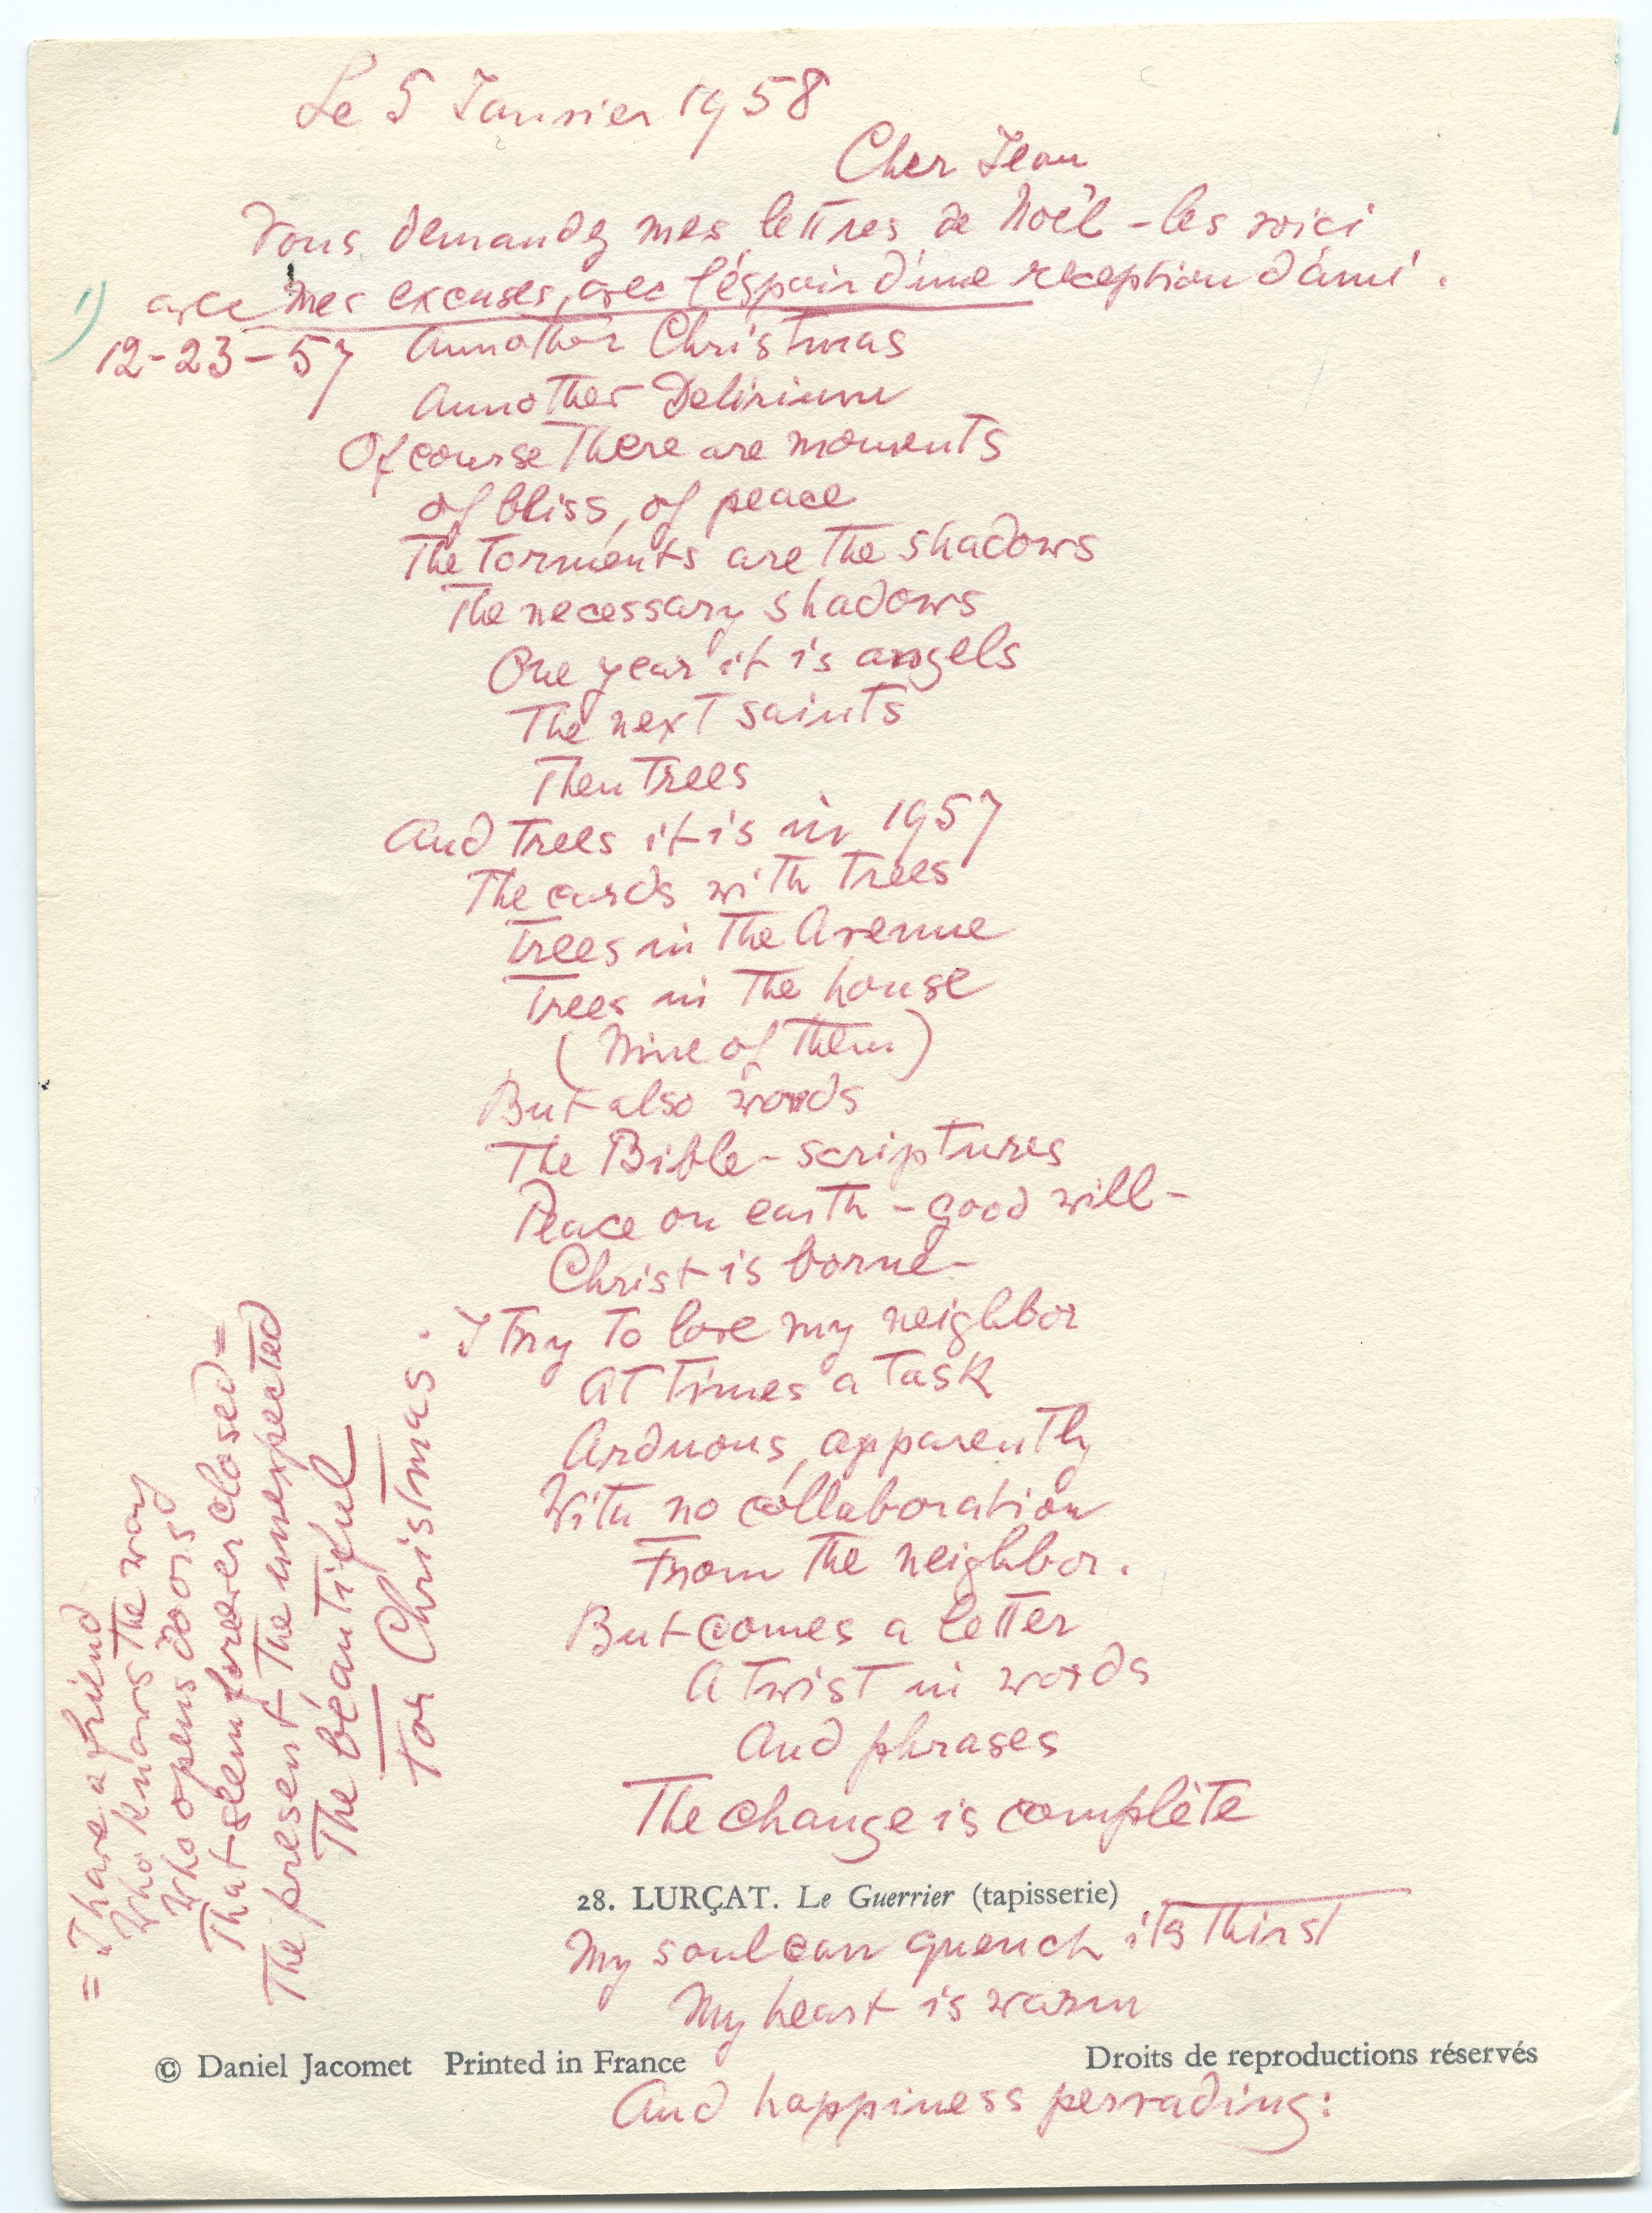 Le 5 Janvier 1958
Cher Jean
Vous demandez mes lettres de Noël - les voici
1) avec mes excuses, avec l'éspoir d'une reception d'ami.
12-23-57 Annother Christmas
Annother Delirium
Of course There are moments
of bliss, of peace
The Torments are The shadows
The necessary shadows
One year it is angels
The next saints
Then Trees
And Trees it is in 1957
The cards with Trees
Trees in The Avenue
Trees in The house
(Nine of Them)
But also words
The Bible - scriptures
Peace on earth - good will -
Christ is borne -
I Try To love my neighbor
At Times a Task
Arduous, apparently
With no collaboration
From The neighbor.
But comes a letter
A Twist in words
And phrases
The change is complète
28. LURÇAT. Le Guerrier (tapisserie)
My soul can quench its Thirst
My heart is warm
© Daniel Jacomet Printed in France Droits de reproductions réservés
And happiness pervading:
= I have a friend
Who knows The way
Who opens doors
That seem forever closed =
The present The unexpected
The béautiful
For Christmas.